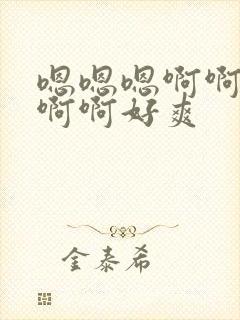 嗯嗯嗯啊啊
啊啊好爽
金泰希